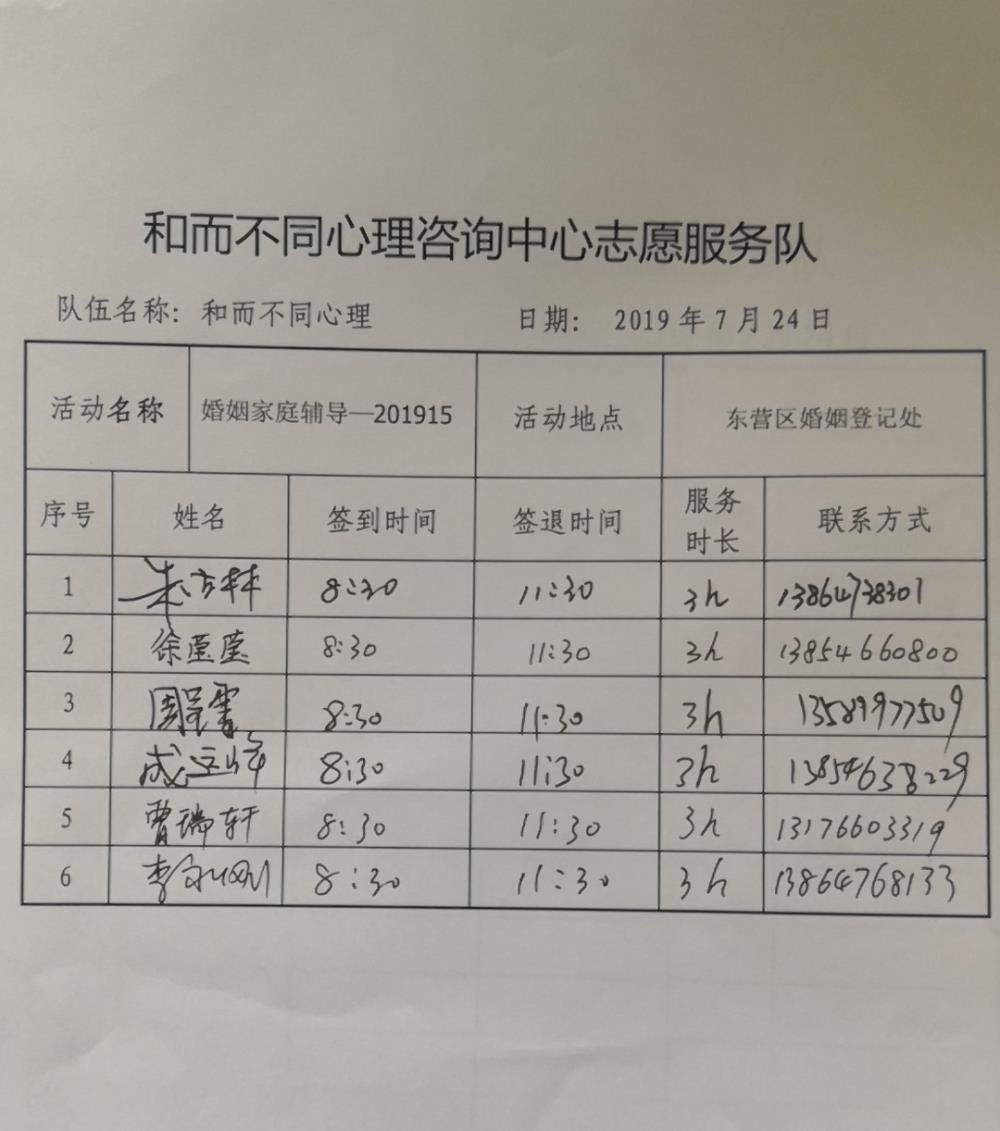 和而不同心理咨询中心志愿服务队
队伍名称：和而不同心理 日期： 2019 年 7 月 24 日
活动名称 婚姻家庭辅导—201915 活动地点 东营区婚姻登记处
序号 姓名 签到时间 签退时间 服务时长 联系方式
1 朱方林 8:30 11:30 3h 13864738301
2 徐莹莹 8:30 11:30 3h 13854660800
3 8:30 11:30 3h 13589977509
4 8:30 11:30 3h 13854638229
5 曹瑞轩 8:30 11:30 3h 13176603319
6 8:30 11:30 3h 13864768133